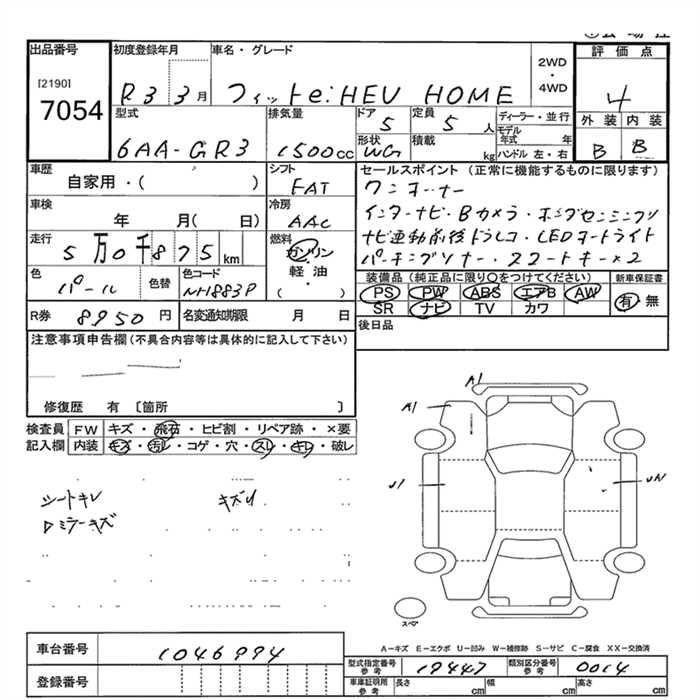 出品番号 初度登録年月 車名・グレード 2WD・4WD 評価点
[2190]
7054
R3 3月 フィットe:HEV HOME 4
型式 排気量 ドア 定員 ディーラー・並行 外装 内装
6AA-GR3 1500cc 5 5人 モデル年式 年 B B
形状 積載
WG kg ハンドル 左・右
車歴 シフト セールスポイント (正常に機能するものに限ります)
自家用・( ) FAT ワンオーナー
車検 冷房 インターナビ・Bカメラ・ホンダセンシング
年 月( 日) AAC ナビ連動前後ドラレコ・LEDオートライト
走行 燃料 パーキングソナー・スマートキー×2
5万0千875km ガソリン
軽・油
( )
色 色替 色コード 装備品 (純正品に限り○をつけてください) 新車保証書
パール NH883P PS PW ABS エアB AW 有・無
SR ナビ TV カワ
R券 8950円 名変通知期限 月 日 後日品
注意事項申告欄(不具合内容等は具体的に記入して下さい)
修復歴 有 〔箇所 〕
検査員 FW キズ・飛石・ヒビ割・リペア跡・×要
記入欄 内装 キズ・汚レ・コゲ・穴・スレ・キレ・破レ
A1
A1
U1
シートキレ キズU
ロミラーキズ
スペア
A-キズ E-エクボ U-凹み W-補修跡 S-サビ C-腐食 XX-交換済
車台番号 1046994
型式指定番号 参考 19447 類別区分番号 参考 0014
登録番号 車庫証明用 参考 長さ cm 幅 cm 高さ cm